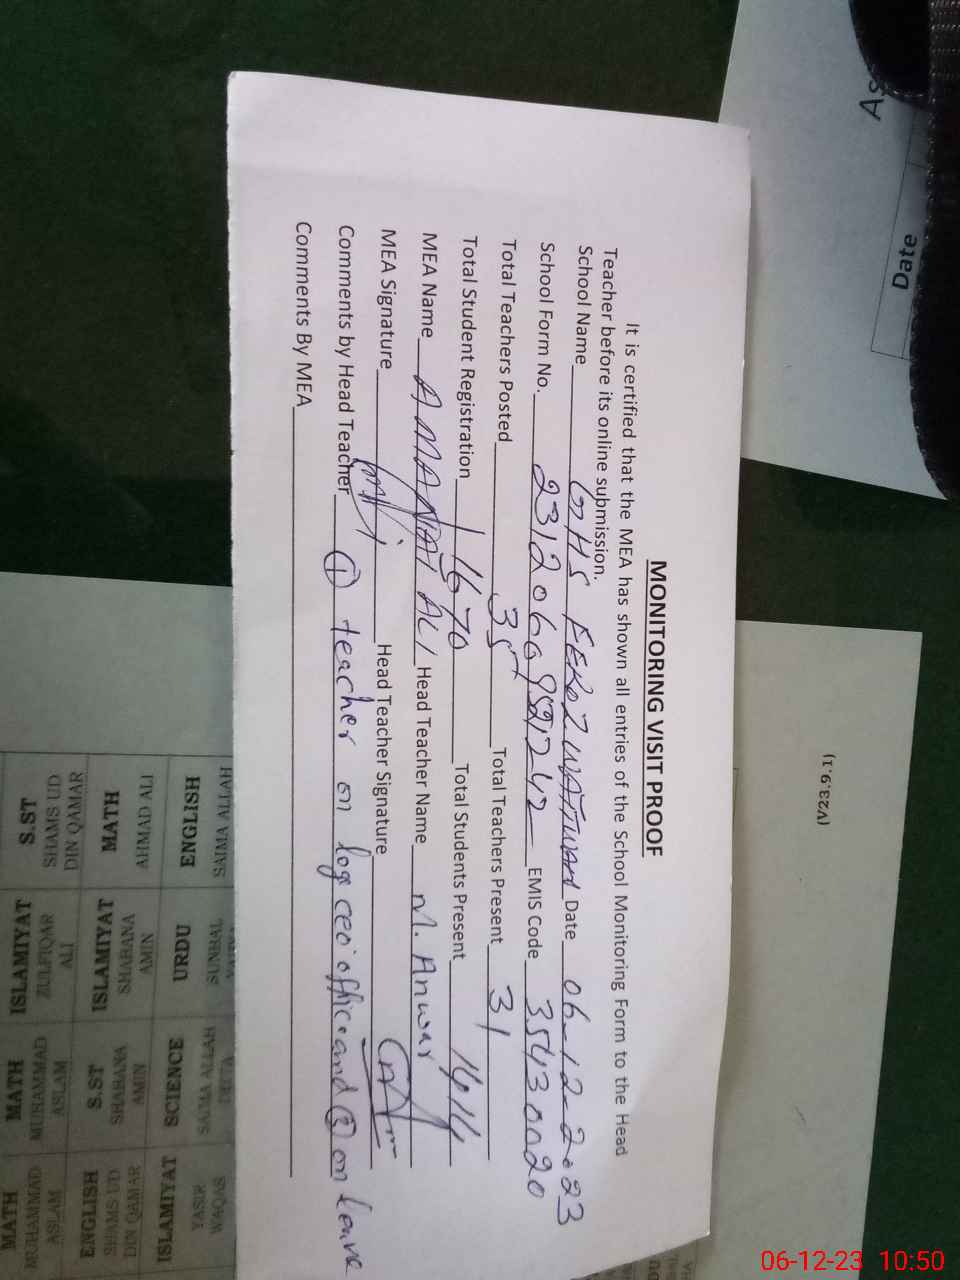 MONITORING VISIT PROOF
It is certified that the MEA has shown all entries of the School Monitoring Form to the Head
Teacher before its online submission.
School Name GHS FEROZWATTWAN Date 06-12-2023
School Form No. EMIS Code 35430020
Total Teachers Posted 35 Total Teachers Present 31
Total Student Registration 1670 Total Students Present 1414
MEA Name AMANAT ALI Head Teacher Name M. Anwar
MEA Signature Head Teacher Signature
Comments by Head Teacher 1 teacher on log ceo office and 3 on leave
Comments By MEA
Date
(V23.9.1)
SAIMA ALLAH
ENGLISH URDU SCIENCE ISLAMIYAT
AHMAD ALI AMIN AMIN DIN QAMAR
SHABANA SHABANA SHAMS UD
MATH ISLAMIYAT S.ST ENGLISH
DIN QAMAR ALI ASLAM ASLAM
SHAMS UD ZULFIQAR MUHAMMAD MUHAMMAD
S.ST ISLAMIYAT MATH MATH
YASIR
WAQAS
06-12-23 10:50